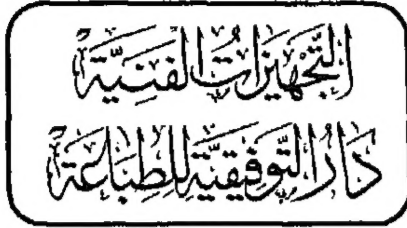 التَّجْهِيزَاتُ الفَنِيَّة
دَارُ التَّوْفِيقِيَّة لِلطِّبَاعَة